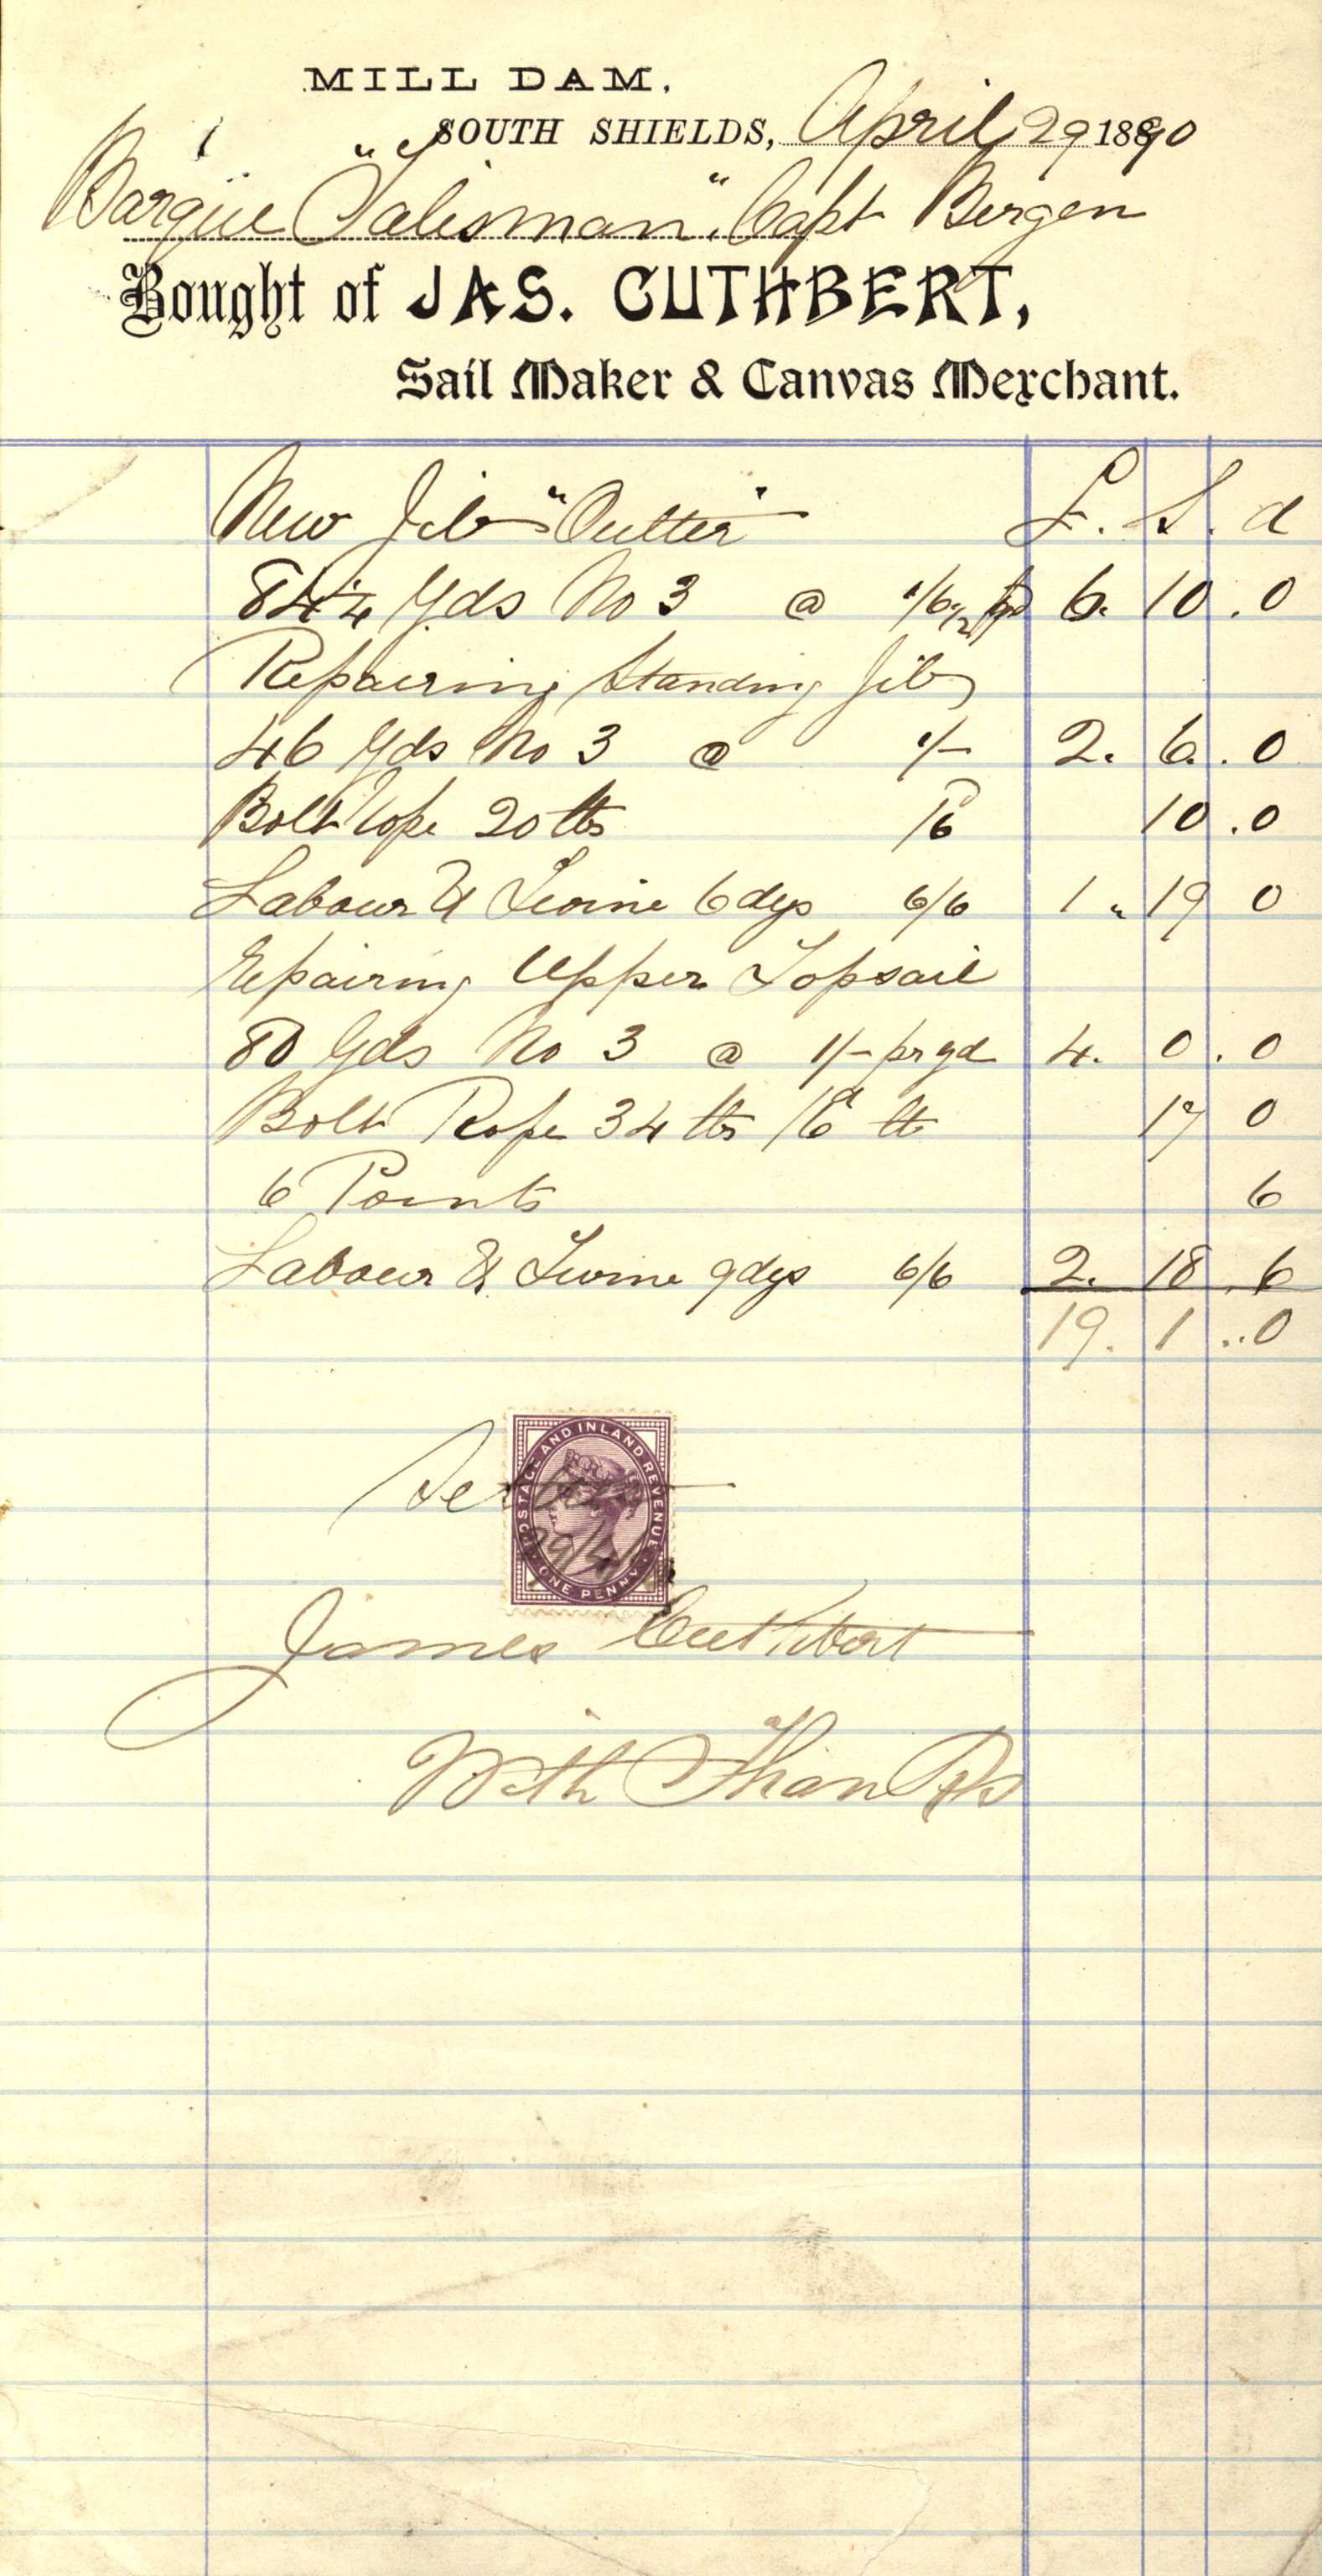 MILL DAM.
SOUTH SHIELDS, April 29 1890
Barque "Talisman". Capt Bergen
Bought of JAS. CUTHBERT,
Sail Maker & Canvas Merchant.
New Jib "Outter" £. S. d
84 1/4 Yds No 3 @ 1/6 1/2 6. 10. 0
Repairing Standing Jib
46 Yds No 3 @ 1/- 2. 6. 0
Bolt Rope 20 lbs /6 10. 0
Labour & Twine 6 dys 6/6 1 " 19 0
Repairing Upper Topsail
80 Yds No 3 @ 1/- pr yd 4. 0. 0
Bolt Rope 34 lbs /6d lb 17 0
6 Points 6
Labour & Twine 9 dys 6/6 2. 18. 6
19. 1 .. 0
POSTAGE AND INLAND REVENUE
29/4/
ONE PENNY
James Cuthbert
With Thanks